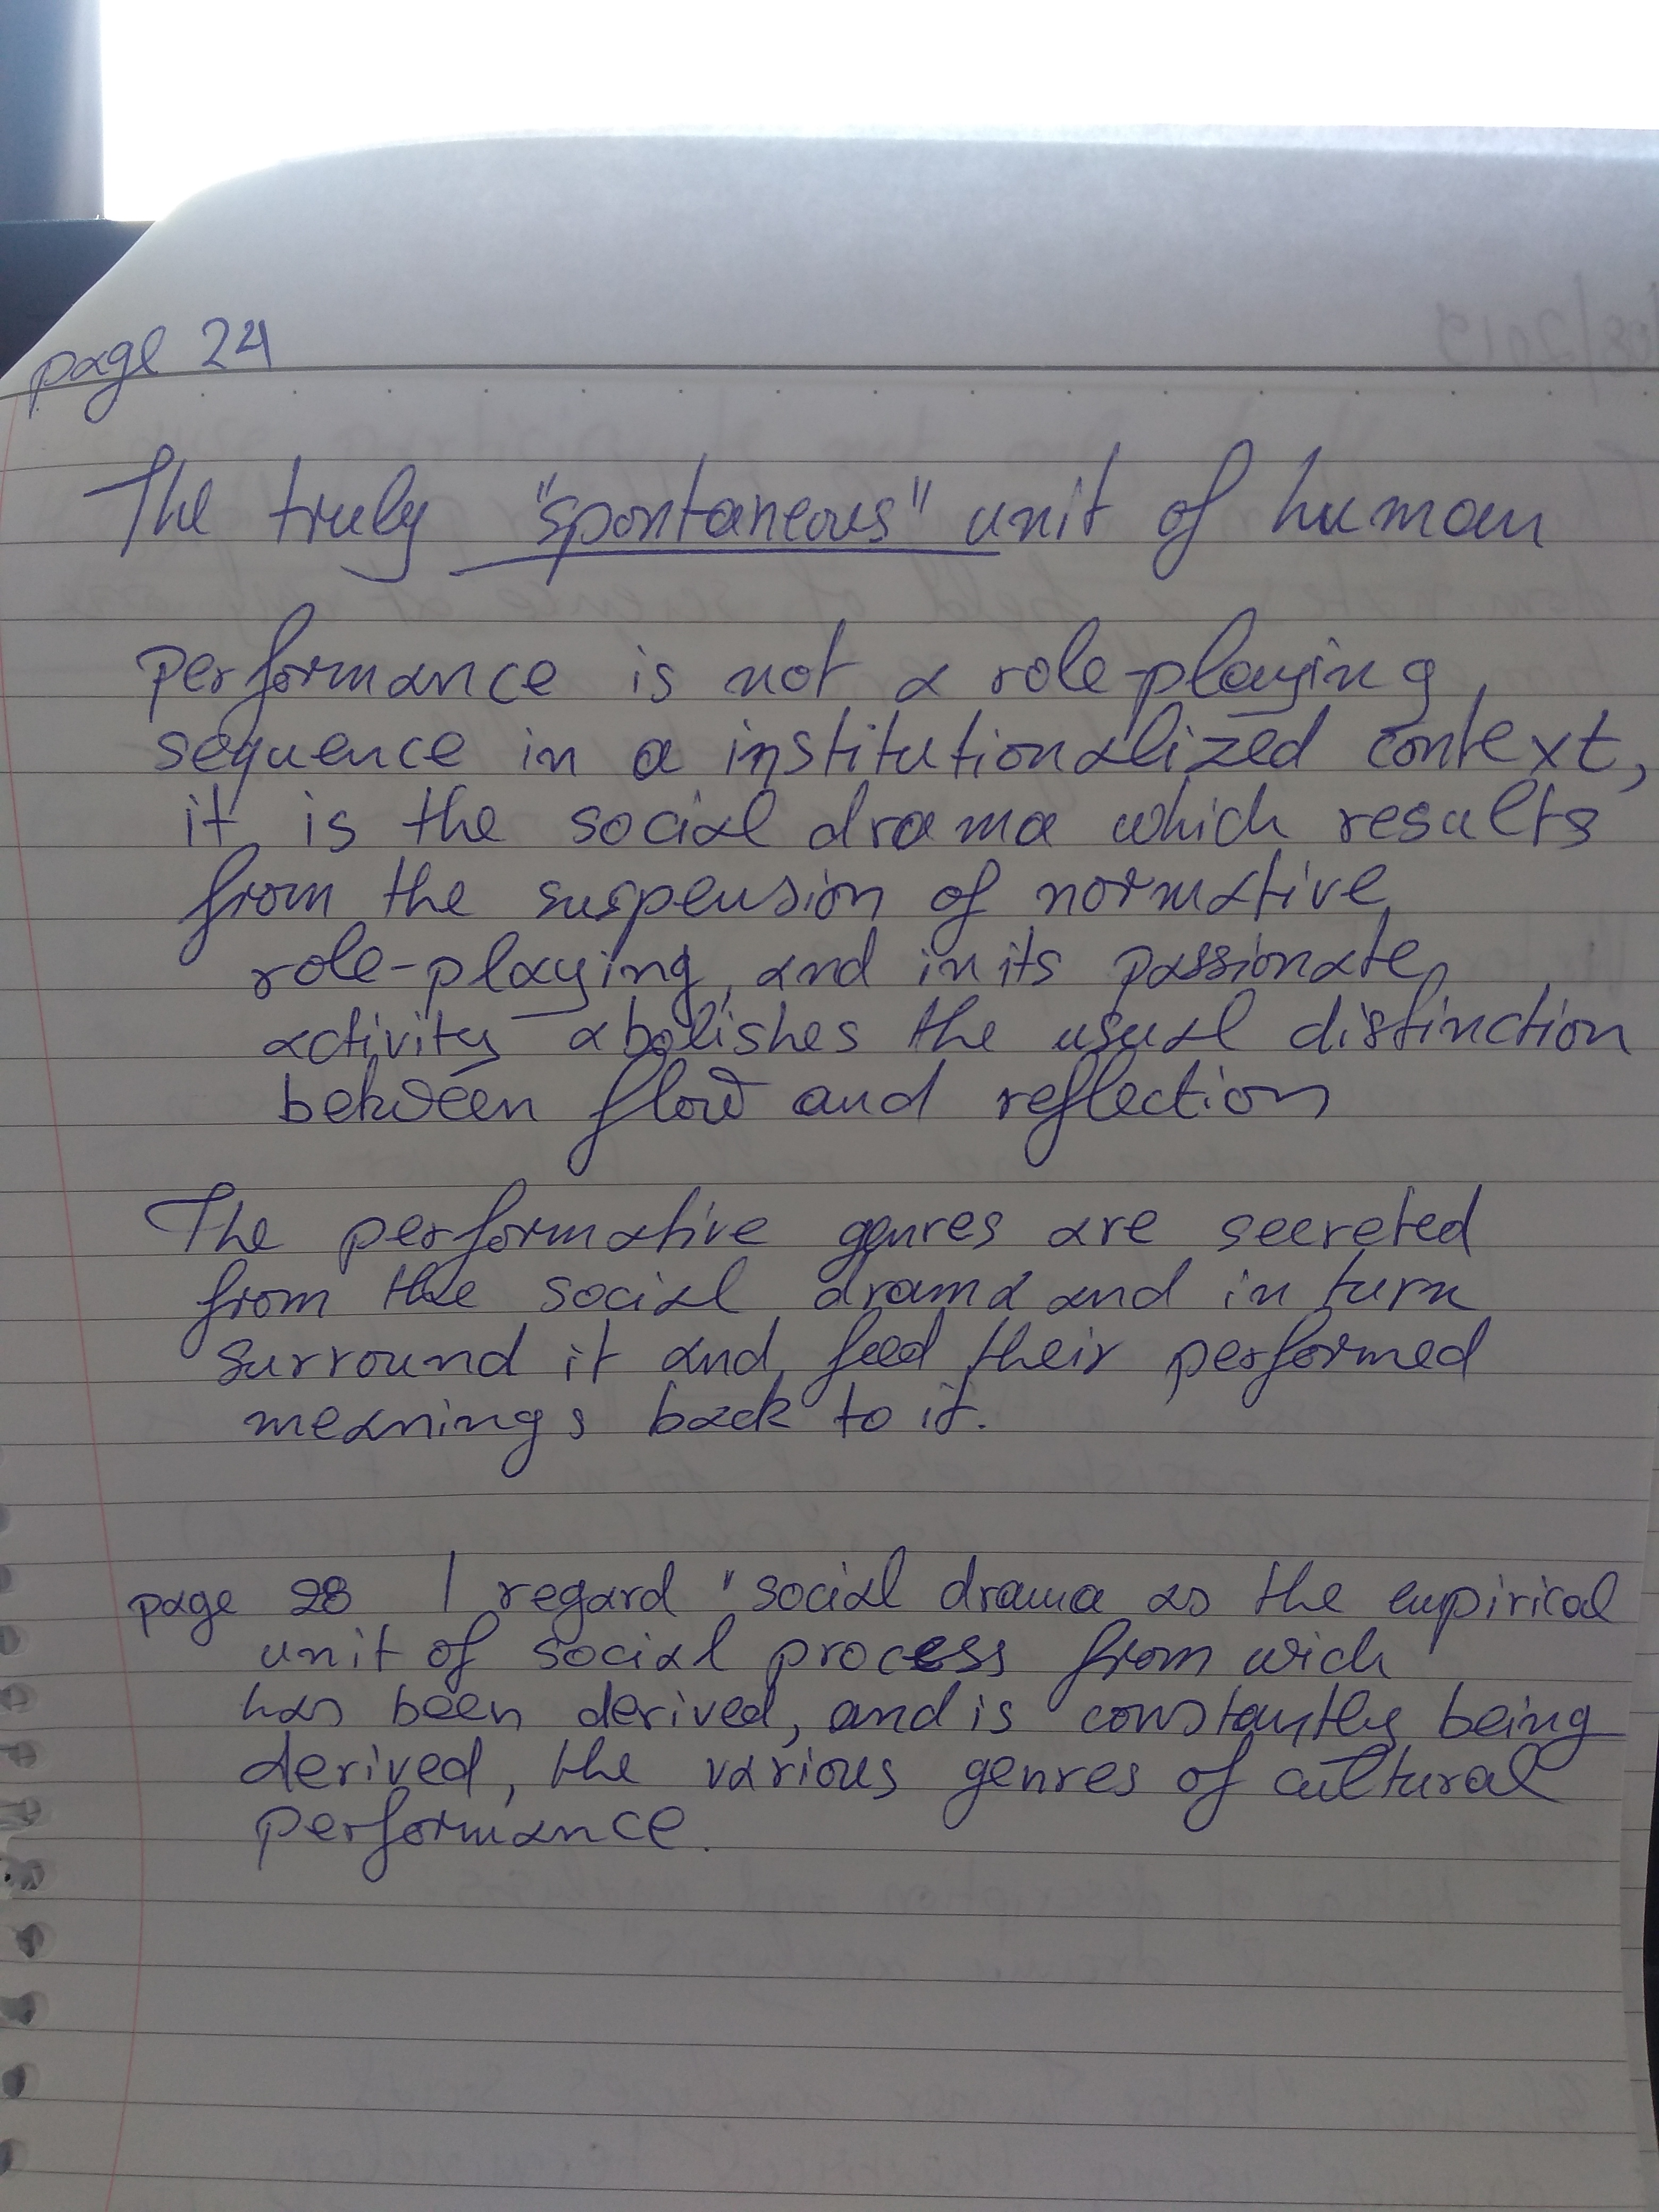 page 24
The truly "spontaneous" unit of human
performance is not a role-playing
sequence in a institutionalized context,
it is the social drama which results
from the suspension of normative
role-playing, and in its passionate
activity abolishes the usual distinction
between flow and reflection
The performative genres are secreted
from the social drama and in turn
surround it and feed their performed
meanings back to it.
page 28 I regard "social drama as the empirical
unit of social process from wich
has been derived, and is constantly being
derived, the various genres of cultural
performance.